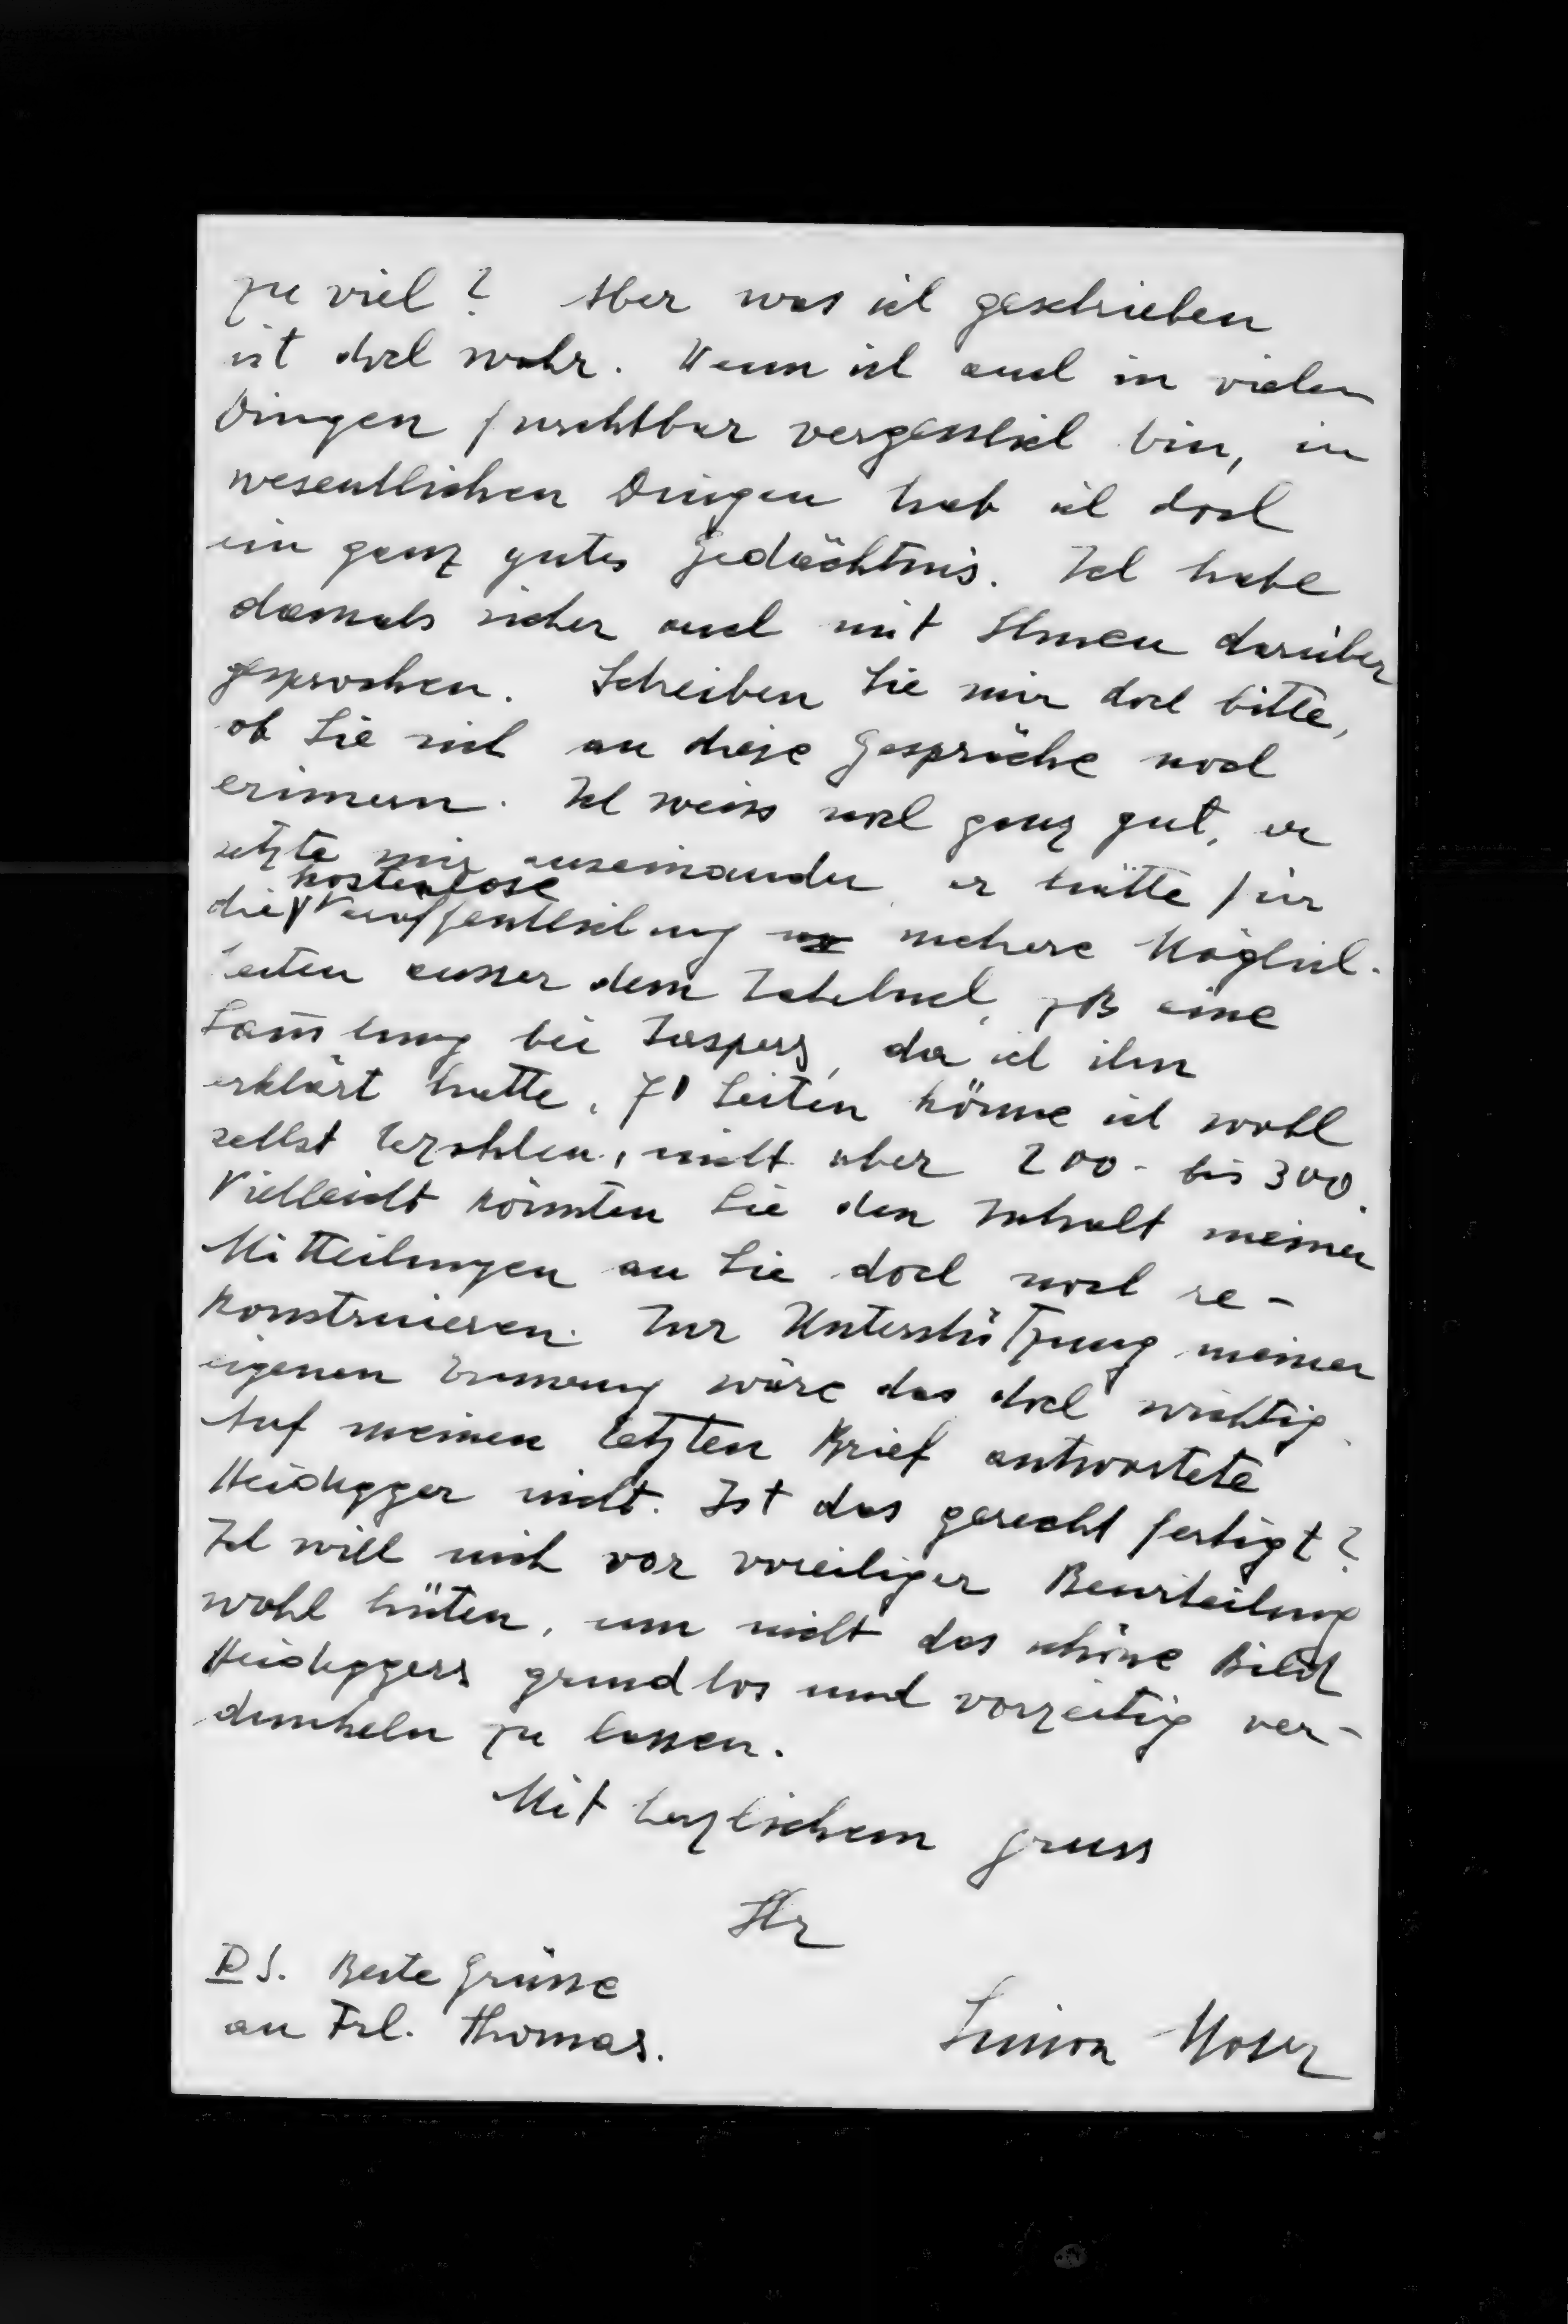 zu viel? Aber was ich geschrieben
ist doch wahr. Wenn ich auch in vielen
Dingen furchtbar vergesslich bin, in
wesentlichen Dingen hab ich doch
ein ganz gutes Gedächtnis. Ich habe
damals sicher auch mit Ihnen darüber
gesprochen. Schreiben Sie mir doch bitte,
ob Sie sich an diese Gespräche noch
erinnern. Ich weiss noch ganz gut, er
setzte mir auseinander, er hätte für
kostenlose
die Veröffentlichung mehrere Möglich-
keiten ausser dem Jahrbuch, zB eine
Sam̅lung bei Jaspers, da ich ihm
erklärt hatte, 70 Seiten könne ich wohl
selbst bezahlen, nicht aber 200- bis 300.
Vielleicht könnten Sie den Inhalt meiner
Mitteilungen an Sie doch noch re-
konstruieren. Zur Unterstützung meiner
eigenen Erinnerung wäre das doch wichtig.
Auf meinen letzten Brief antwortete
Heidegger nicht. Ist das gerechtfertigt?
Ich will mich vor voreiliger Beurteilung
wohl hüten, um nicht das schöne Bild
Heideggers grundlos und vorzeitig ver-
dunkeln zu lassen.
Mit herzlichem Gruss
Ihr
Simon Moser
P.S. Beste Grüsse
an Frl. Thomas.